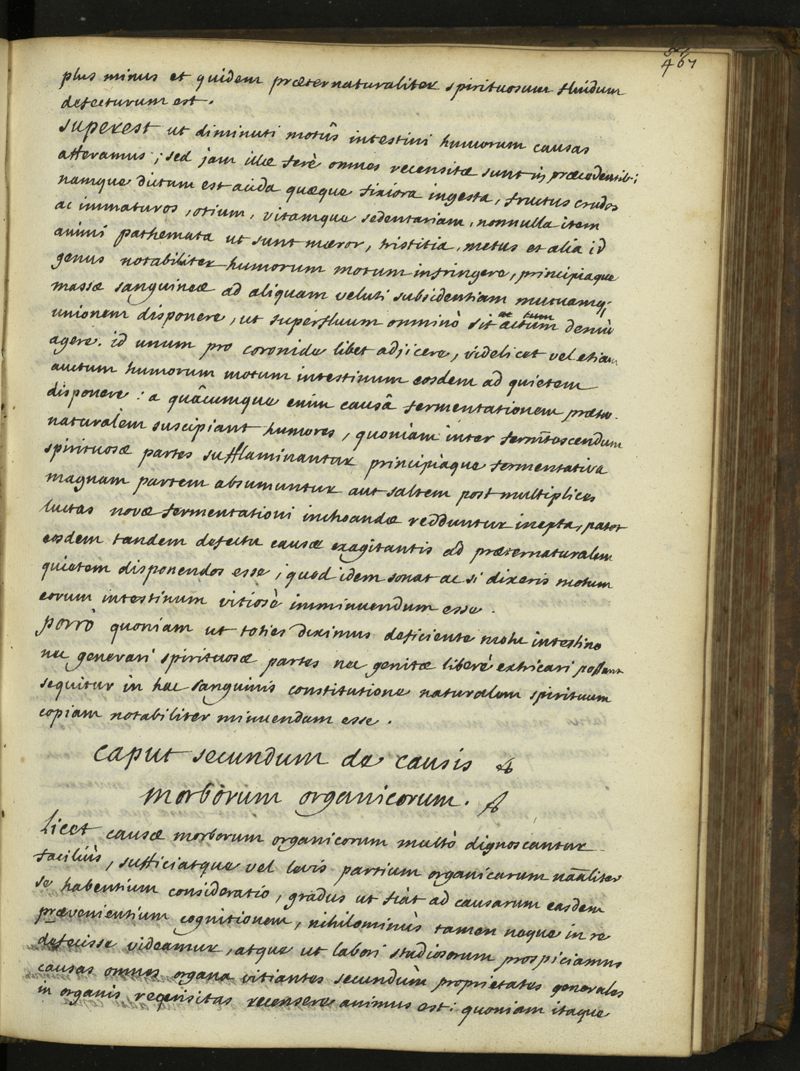 467
plus minus et quidem præternaturaliter spirituosum fluidum
defecturum est.
superest ut diminuti motûs intestini humorum causas
afferamus; sed jam illæ ferè omnes recensitæ sunt in præcedentib:
namque dictum est acida quæque fixiora ingesta, fructus crudos
ac immaturos, otium, vitamque sedentariam, nonnulla item
animi pathemata ut sunt mæror, tristitia, metus et alia id
genus notabiliter humorum motum infringere, principiaque
massæ sanguineæ ad aliquam veluti subsidentiam mutuamq;
unionem disponere, ut superfluum omninò sit actum denuò
agere. id unum pro coronide libet adjicere, videlicet vel etiam
auctum humorum motum intestinum eosdem ad quietem
disponere: a quâcumque enim causâ fermentationem præter-
naturalem suscipiant humores, quoniam inter fermentescendum
spirituosæ partes sufflaminantur principiaque fermentativa
magnam partem absumuntur aut saltem post multiplices
luctas novæ fermentationi inchoandæ redduntur inepta, patet
eosdem tandem defectu causæ exagitantis ad præternaturalem
quietem disponendos esse; quod idem sonat ac si dixeris motum
eorum intestinum vitiosè imminuendum esse.
porrò quoniam ut toties diximus deficiente motu intestino
nec generari spirituosæ partes nec genitæ liberè extricari possunt
sequitur in hac sanguinis constitutione naturalem spirituum
copiam notabiliter minuendam esse.
caput secundum de causis
morborum organicorum.
licet causæ morborum organicorum multò dignoscantur
faciliùs, sufficiatque vel levis partium organicarum nãaliter
se habentium consideratio, gradus ut fiat ad causarum easdem
prævenientium cognitionem, nihilominùs tamen neque in re
defecisse videamur, atque ut labori studiosorum prospiciamus
causas omnes organa vitiantes secundùm proprietates generales
in organis recensitas recensere animus est: quoniam itaque